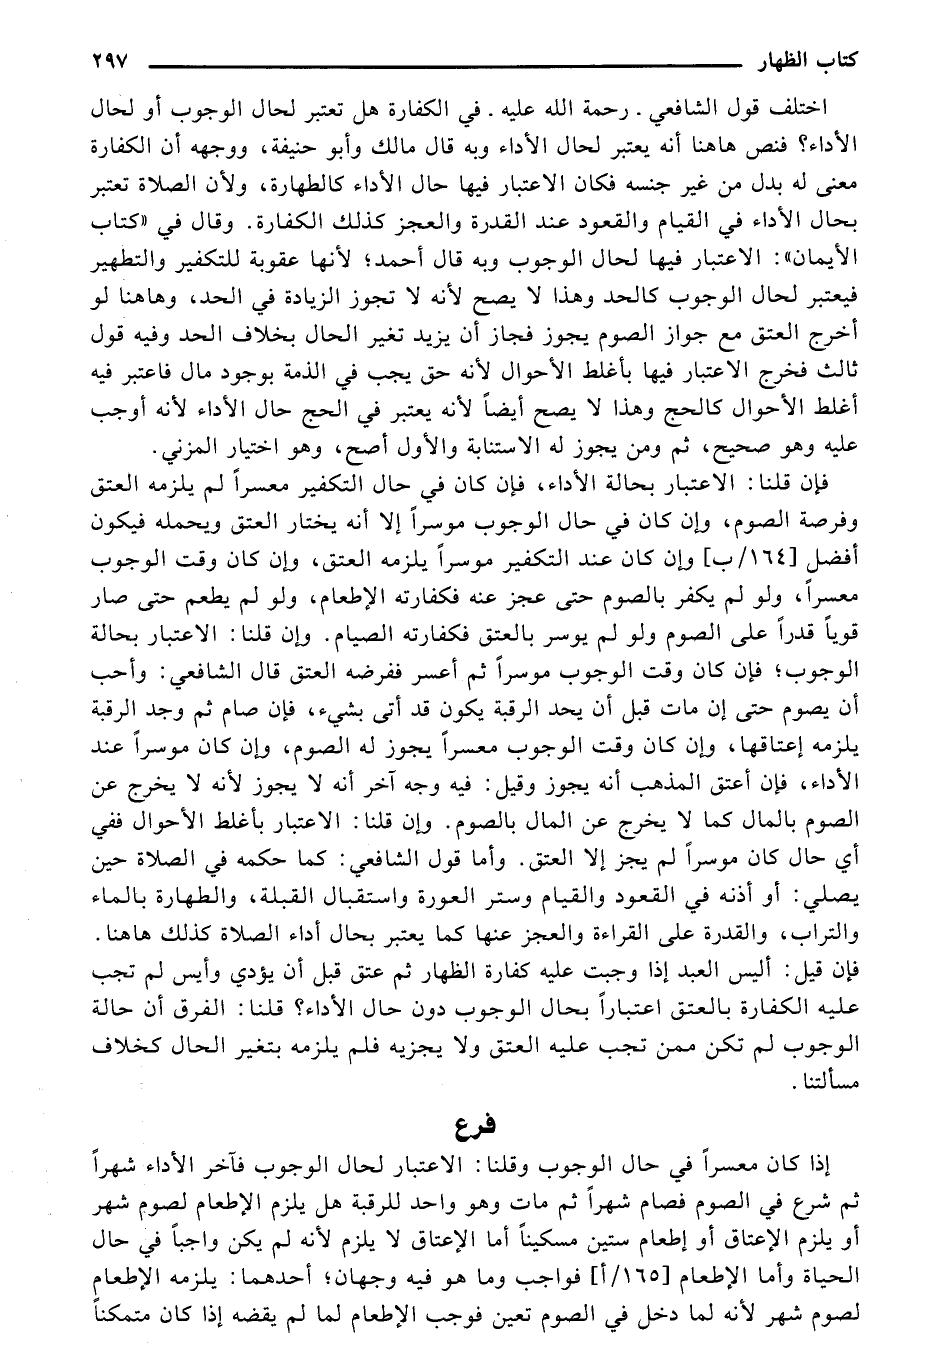 كتاب الظهار ٢٩٧
اختلف قول الشافعي - رحمة الله عليه - في الكفارة هل تعتبر لحال الوجوب أو لحال
الأداء؟ فنص هاهنا أنه يعتبر لحال الأداء وبه قال مالك وأبو حنيفة، ووجهه أن الكفارة
معنى له بدل من غير جنسه فكان الاعتبار فيها حال الأداء كالطهارة، ولأن الصلاة تعتبر
بحال الأداء في القيام والقعود عند القدرة والعجز كذلك الكفارة. وقال في «كتاب
الأيمان»: الاعتبار فيها لحال الوجوب وبه قال أحمد؛ لأنها عقوبة للتكفير والتطهير
فيعتبر لحال الوجوب كالحد وهذا لا يصح لأنه لا تجوز الزيادة في الحد، وهاهنا لو
أخرج العتق مع جواز الصوم يجوز فجاز أن يزيد تغير الحال بخلاف الحد وفيه قول
ثالث فخرج الاعتبار فيها بأغلط الأحوال لأنه حق يجب في الذمة بوجود مال فاعتبر فيه
أغلط الأحوال كالحج وهذا لا يصح أيضاً لأنه يعتبر في الحج حال الأداء لأنه أوجب
عليه وهو صحيح، ثم ومن يجوز له الاستنابة والأول أصح، وهو اختيار المزني.
فإن قلنا: الاعتبار بحالة الأداء، فإن كان في حال التكفير معسراً لم يلزمه العتق
وفرصة الصوم، وإن كان في حال الوجوب موسراً إلا أنه يختار العتق ويحمله فيكون
أفضل [١٦٤/ب] وإن كان عند التكفير موسراً يلزمه العتق، وإن كان وقت الوجوب
معسراً، ولو لم يكفر بالصوم حتى عجز عنه فكفارته الإطعام، ولو لم يطعم حتى صار
قوياً قدراً على الصوم ولو لم يوسر بالعتق فكفارته الصيام. وإن قلنا: الاعتبار بحالة
الوجوب؛ فإن كان وقت الوجوب موسراً ثم أعسر ففرضه العتق قال الشافعي: وأحب
أن يصوم حتى إن مات قبل أن يحد الرقبة يكون قد أتى بشيء، فإن صام ثم وجد الرقبة
يلزمه إعتاقها، وإن كان وقت الوجوب معسراً يجوز له الصوم، وإن كان موسراً عند
الأداء، فإن أعتق المذهب أنه يجوز وقيل: فيه وجه آخر أنه لا يجوز لأنه لا يخرج عن
الصوم بالمال كما لا يخرج عن المال بالصوم. وإن قلنا: الاعتبار بأغلط الأحوال ففي
أي حال كان موسراً لم يجز إلا العتق. وأما قول الشافعي: كما حكمه في الصلاة حين
يصلي: أو أذنه في القعود والقيام وستر العورة واستقبال القبلة، والطهارة بالماء
والتراب، والقدرة على القراءة والعجز عنها كما يعتبر بحال أداء الصلاة كذلك هاهنا.
فإن قيل: أليس العبد إذا وجبت عليه كفارة الظهار ثم عتق قبل أن يؤدي وأيس لم تجب
عليه الكفارة بالعتق اعتباراً بحال الوجوب دون حال الأداء؟ قلنا: الفرق أن حالة
الوجوب لم تكن ممن تجب عليه العتق ولا يجزيه فلم يلزمه بتغير الحال كخلاف
مسألتنا.
فرع
إذا كان معسراً في حال الوجوب وقلنا: الاعتبار لحال الوجوب فآخر الأداء شهراً
ثم شرع في الصوم فصام شهراً ثم مات وهو واحد للرقبة هل يلزم الإطعام لصوم شهر
أو يلزم الإعتاق أو إطعام ستين مسكيناً أما الإعتاق لا يلزم لأنه لم يكن واجباً في حال
الحياة وأما الإطعام [١٦٥/أ] فواجب وما هو فيه وجهان؛ أحدهما: يلزمه الإطعام
لصوم شهر لأنه لما دخل في الصوم تعين فوجب الإطعام لما لم يقضه إذا كان متمكناً